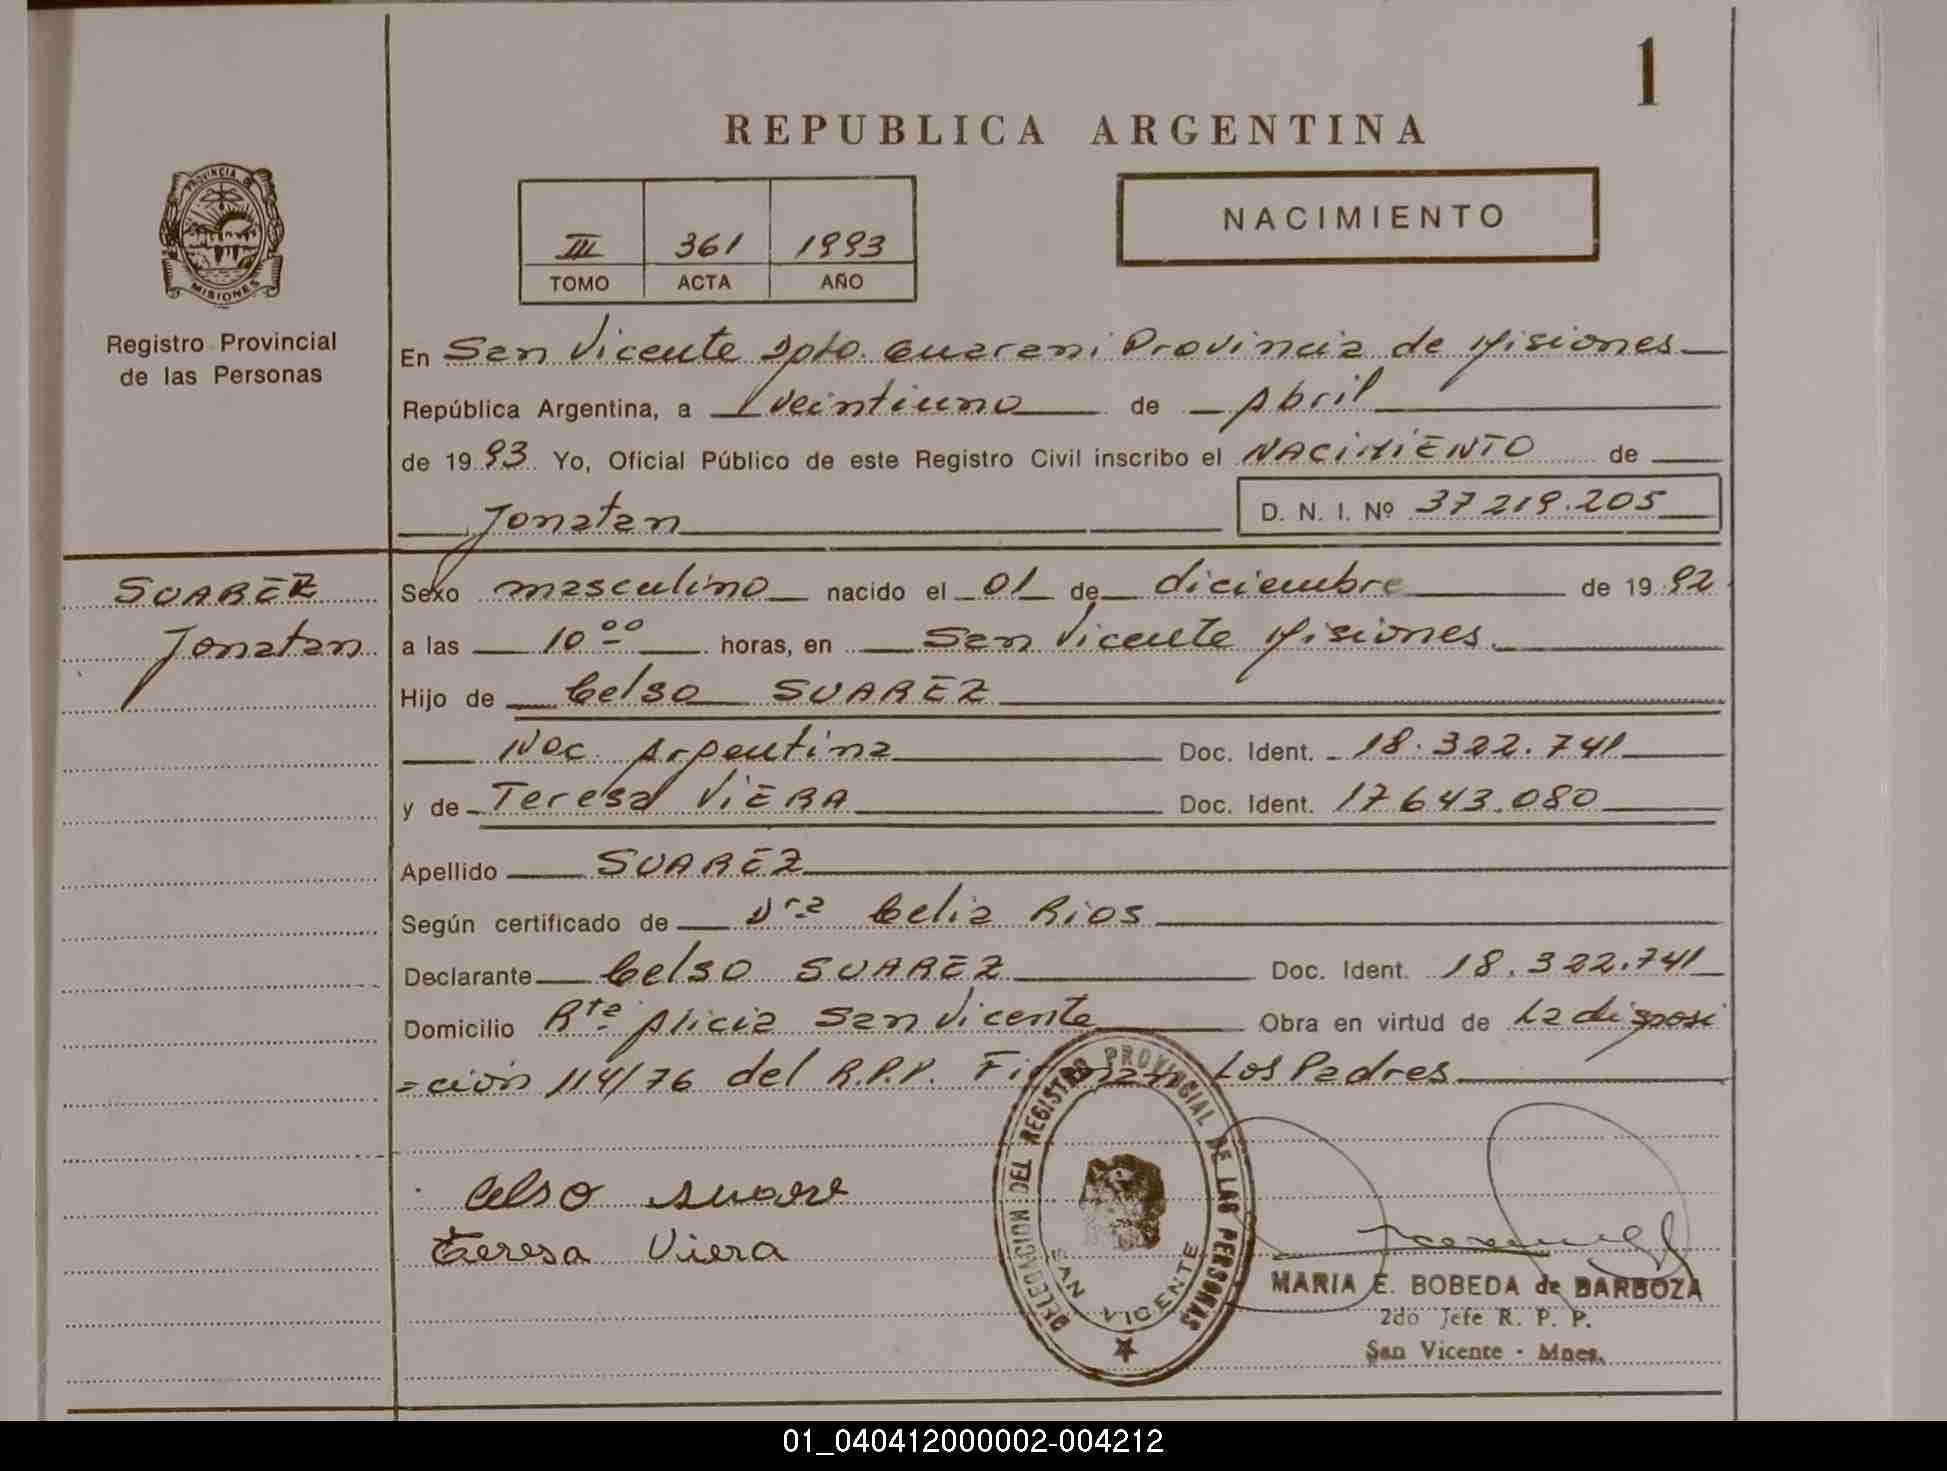 1
REPUBLICA ARGENTINA
PROVINCIA DE
MISIONES
Registro Provincial
de las Personas
III 361 1993
TOMO ACTA AÑO
NACIMIENTO
En San Vicente Dpto. Guarani Provincia de Misiones
República Argentina, a veintiuno de Abril
de 1993 Yo, Oficial Público de este Registro Civil inscribo el NACIMIENTO de
Jonatan D. N. I. Nº 37219.205
SUAREZ
Jonatan
Sexo masculino nacido el 01 de diciembre de 1992
a las 10⁰⁰ horas, en San Vicente Misiones.
Hijo de Celso SUAREZ
Nac. Argentina Doc. Ident. 18.322.741
y de Teresa VIERA Doc. Ident. 17643.080
Apellido SUAREZ
Según certificado de Dra Celia Rios
Declarante Celso SUAREZ Doc. Ident. 18.322.741
Domicilio Rta Alicia San Vicente Obra en virtud de La disposi
=ción 114/76 del R.P.P. Firman Los Padres
Celso Suarez
Teresa Viera
DELEGACION DEL REGISTRO PROVINCIAL DE LAS PERSONAS
SAN VICENTE
MARIA E. BOBEDA de BARBOZA
2do Jefe R. P. P.
San Vicente - Mnes.
01_040412000002-004212